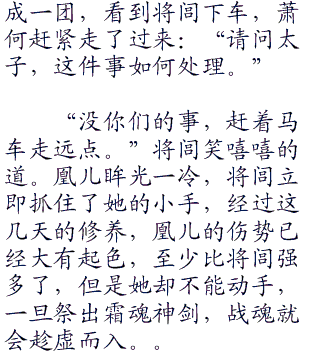 成一团，看到将闾下车，萧
何赶紧走了过来：“请问太
子，这件事如何处理。”
“没你们的事，赶着马
车走远点。”将闾笑嘻嘻的
道。凰儿眸光一冷，将闾立
即抓住了她的小手，经过这
几天的修养，凰儿的伤势已
经大有起色，至少比将闾强
多了，但是她却不能动手，
一旦祭出霜魂神剑，战魂就
会趁虚而入。。